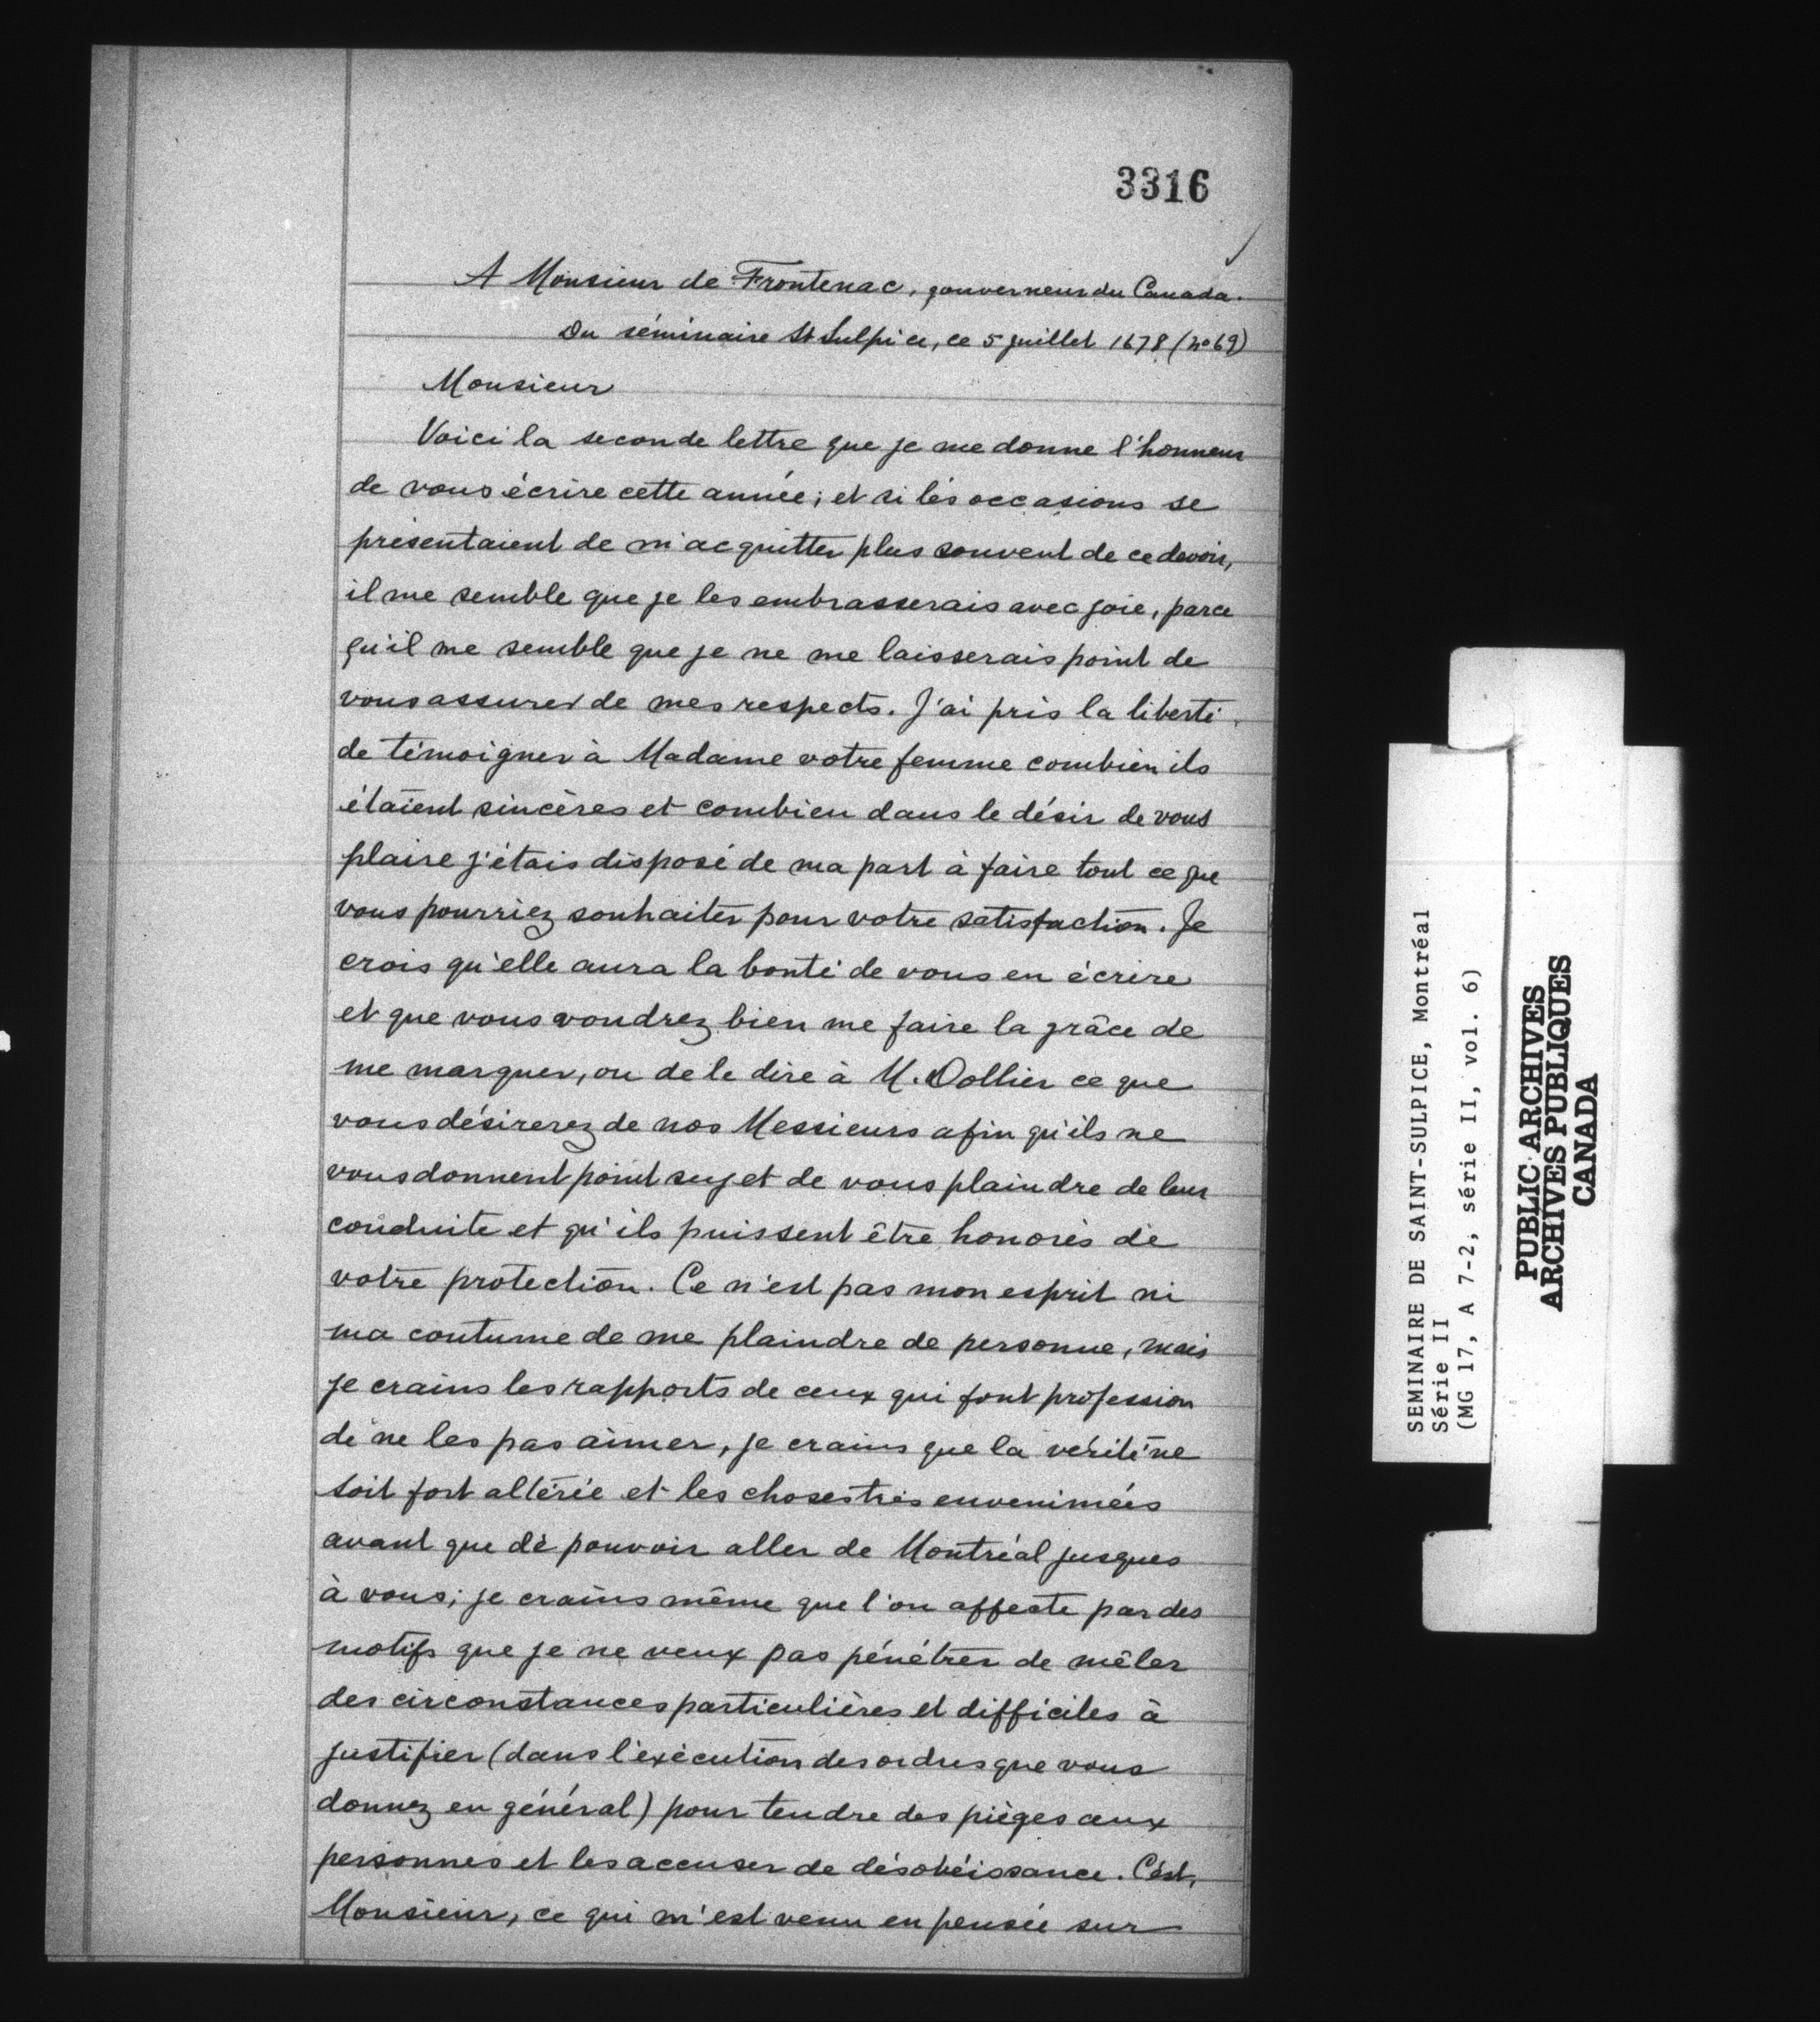 3316
A Monsieur de Frontenac, gouverneur du Canada.
Du séminaire St Sulpice, ce 5 juillet 1678 (no 69)
Monsieur
Voici la seconde lettre que je me donne l'honneur
de vous écrire cette année; et si les occasions se
présentaient de m'acquitter plus souvent de ce devoir,
il me semble que je les embrasserais avec joie, parce
qu'il me semble que je ne me laisserais point de
vous assurer de mes respects. J'ai pris la liberté
de témoigner à Madame votre femme combien ils
étaient sincères et combien dans le désir de vous
plaire j'étais disposé de ma part à faire tout ce que
vous pourriez souhaiter pour votre satisfaction. Je
crois qu'elle aura la bonté de vous en écrire
et que vous voudrez bien me faire la grâce de
me marquer, ou de le dire à M. Dollier ce que
vous désirerez de nos Messieurs afin qu'ils ne
vous donnent point sujet de vous plaindre de leur
conduite et qu'ils puissent être honorés de
votre protection. Ce n'est pas mon esprit ni
ma coutume de me plaindre de personne, mais
je crains les rapports de ceux qui font profession
de ne les pas aimer, je crains que la vérité ne
soit fort altérée et les choses très envenimées
avant que de pouvoir aller de Montréal jusques
à vous; je crains même que l'on affecte par des
motifs que je ne veux pas pénétrer de mêler
des circonstances particulières et difficiles à
justifier (dans l'exécution des ordres que vous
donnez en général) pour tendre des pièges aux
personnes et les accuser de désobéissance. C'est,
Monsieur, ce qui m'est venu en pensée sur
SEMINAIRE DE SAINT-SULPICE, Montréal
Série II
(MG 17, A 7-2, série II, vol. 6)
PUBLIC ARCHIVES
ARCHIVES PUBLIQUES
CANADA